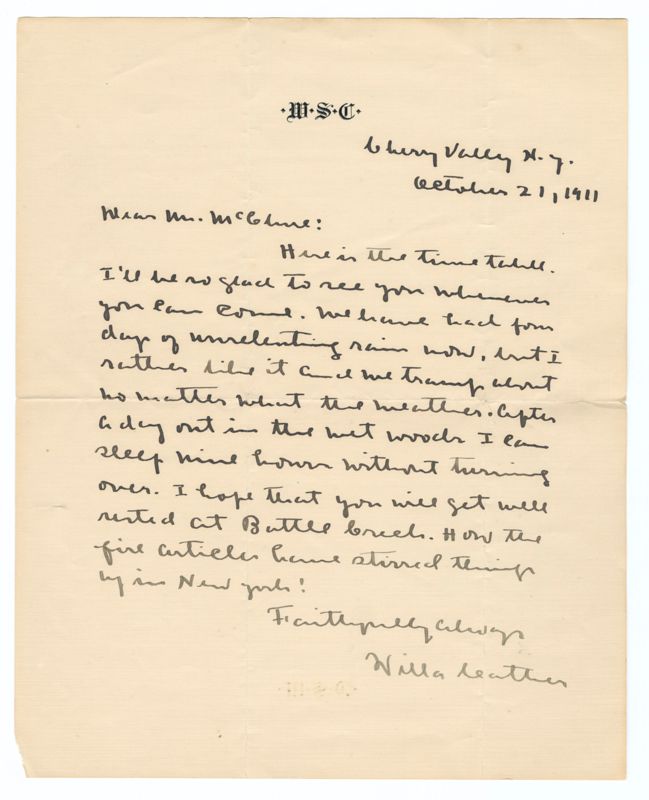 ·W·S·C·
Cherry Valley N.Y.
October 21, 1911
Dear Mr. McClure:
Here is the time table.
I'll be so glad to see you whenever
you can come. We have had four
days of unrelenting rain now, but I
rather like it and we tramp about
no matter what the weather. After
a day out in the wet woods I can
sleep nine hours without turning
over. I hope that you will get well
rested at Battle Creek. How the
fire articles have stirred things
up in New York!
Faithfully always
Willa Cather